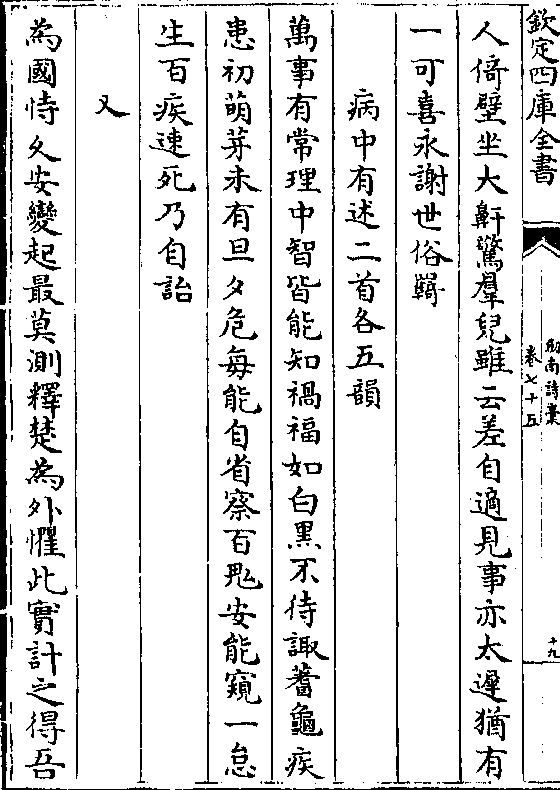 欽定四庫全書
劍南詩藁
卷七十五
十九
人倚壁坐大鼾驚羣兒雖云差自適見事亦太遲猶有
一可喜永謝世俗羇
病中有述二首各五韻
萬事有常理中智皆能知禍福如白黑不待諏蓍龜疾
患初萌芽未有旦夕危每能自省察百鬼安能窺一怠
生百疾速死乃自詒
又
為國恃久安變起最莫測釋楚為外懼此實計之得吾